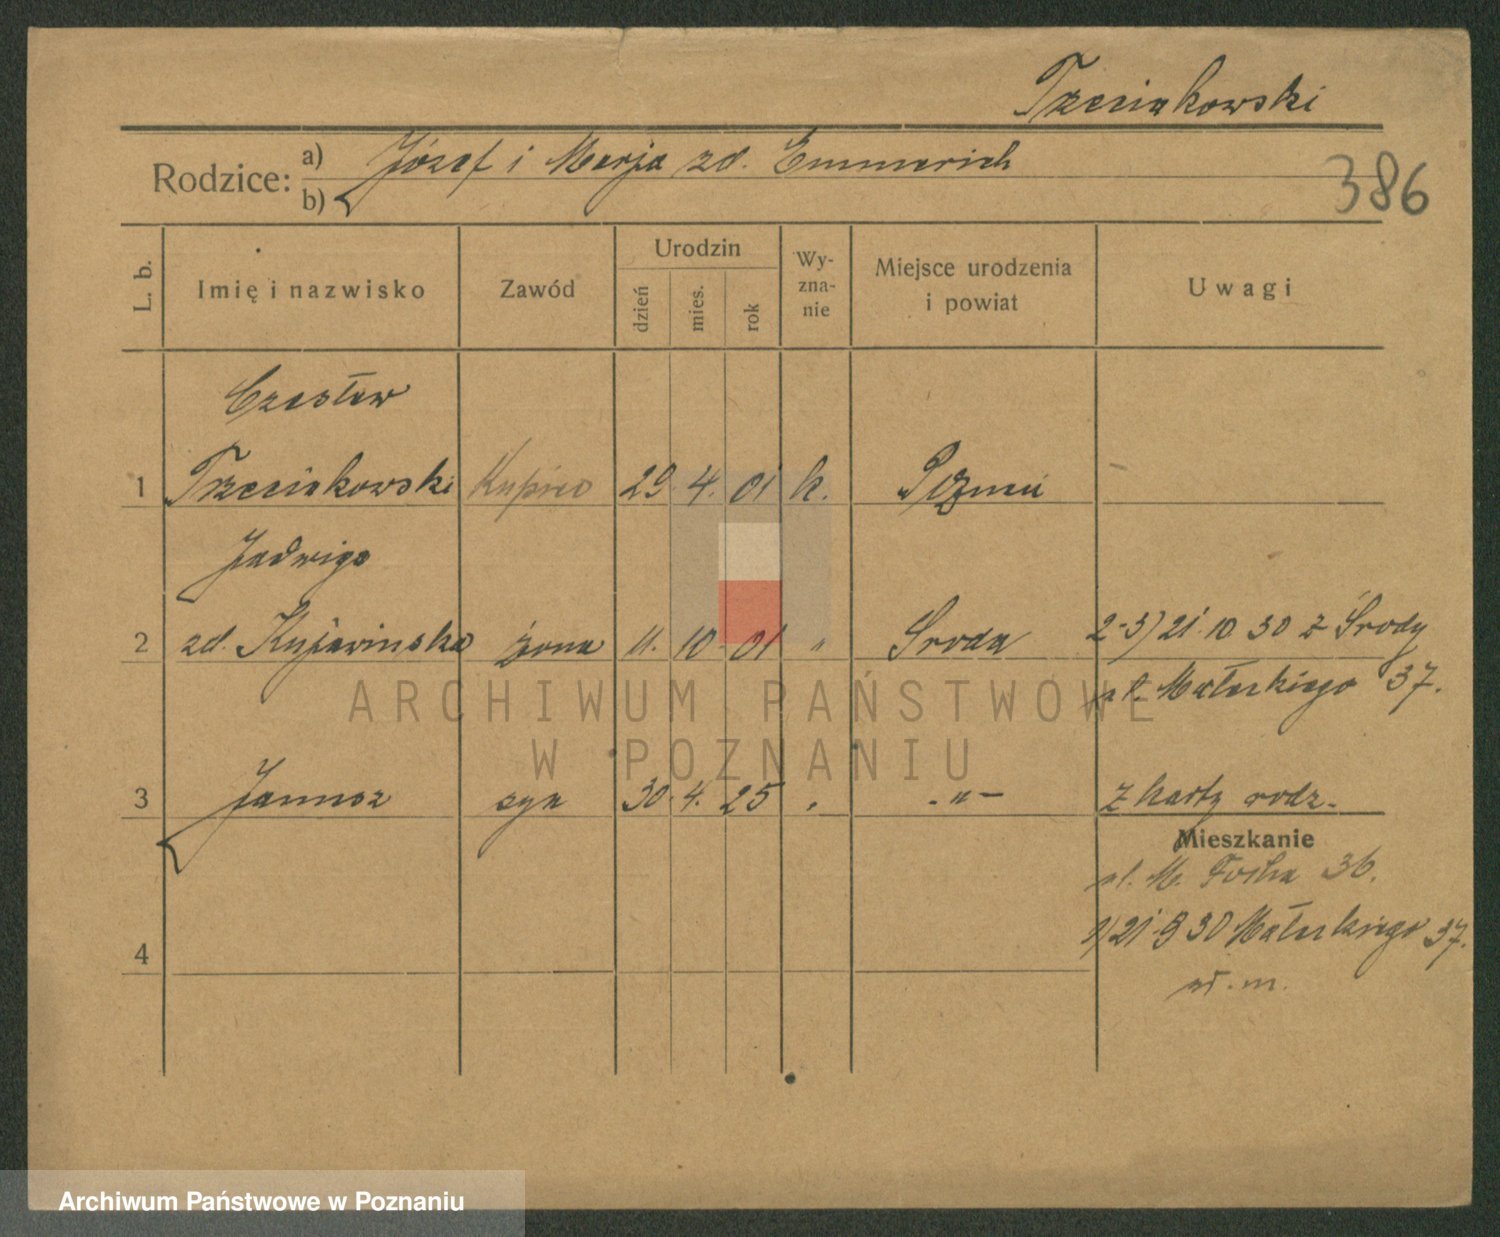 Trzeciakowski
Rodzice: a) Józef i Marja zd. Emmerich
b)
386
L. b. Imię i nazwisko Zawód Urodzin dzień mies. rok Wyznanie Miejsce urodzenia i powiat Uwagi
Czesław
1 Trzeciakowski Kupiec 29. 4. 01 k. Pozn
Jadwiga
2 zd. Kujawinska żona 11. 10. 01 " Sroda 2-3) 21. 10 30 z Środy
ul. Małeckiego 37.
3 Janusz syn 30. 4. 25 " -"- z karty rodz.
Mieszkanie
ul. M. Focha 36.
4 1) 21. 8 30 Małeckiego 37.
wł. m.
ARCHIWUM PAŃSTWOWE
W POZNANIU
Archiwum Państwowe w Poznaniu